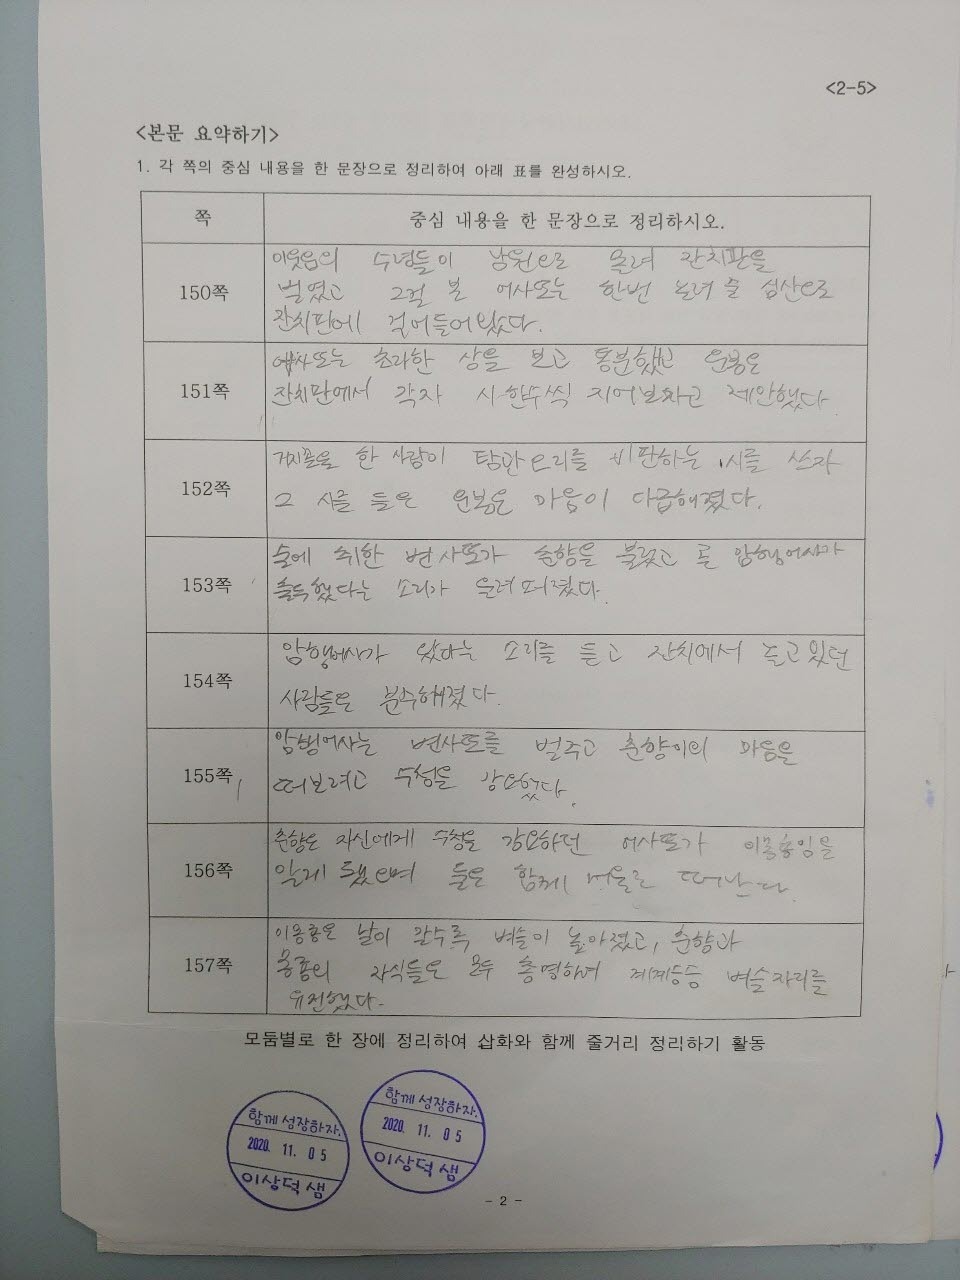 <2-5>
<본문 요약하기>
1. 각 쪽의 중심 내용을 한 문장으로 정리하여 아래 표를 완성하시오.
쪽
중심 내용을 한 문장으로 정리하시오.
150쪽
이웃읍의 수령들이 남원으로 몰려 잔치판을
벌였고 그걸 본 어사또는 한번 놀려 줄 심산으로
잔치판에 걸어들어갔다.
151쪽
어사또는 초라한 상을 보고 통분했고 운봉은
잔치판에서 각자 시 한수씩 지어보자고 제안했다
152쪽
거지꼴을 한 사람이 탐관오리를 비판하는 시를 쓰자
그 시를 들은 운봉은 마음이 다급해졌다.
153쪽
술에 취한 변사또가 춘향을 불렀고 곧 암행어사가
출두했다는 소리가 울려퍼졌다.
154쪽
암행어사가 왔다는 소리를 듣고 잔치에서 놀고있던
사람들은 분주해졌다.
155쪽
암행어사는 변사또를 벌주고 춘향이의 마음을
떠보려고 수청을 강요했다.
156쪽
춘향은 자신에게 수청을 강요하던 어사또가 이몽룡임을
알게 됐으며 둘은 함께 서울로 떠난다.
157쪽
이몽룡은 날이 갈수록 벼슬이 높아졌고, 춘향과
몽룡의 자식들은 모두 총명하여 계계승승 벼슬자리를
유전했다.
모둠별로 한 장에 정리하여 삽화와 함께 줄거리 정리하기 활동
함께 성장하자.
2020. 11. 05
이상덕 샘
함께 성장하자.
2020. 11. 05
이상덕 샘
- 2 -